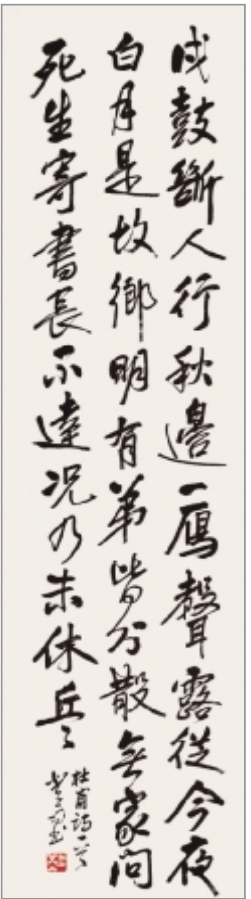 戍鼓斷人行秋邊一鴈聲露從今夜
白月是故鄉明有弟皆分散無家問
死生寄書長不達況乃未休兵
杜甫詩一首